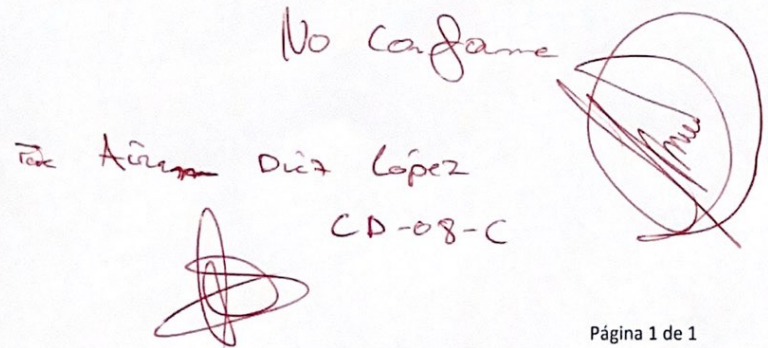 No Conforme
Díez López
CD-08-C
Página 1 de 1